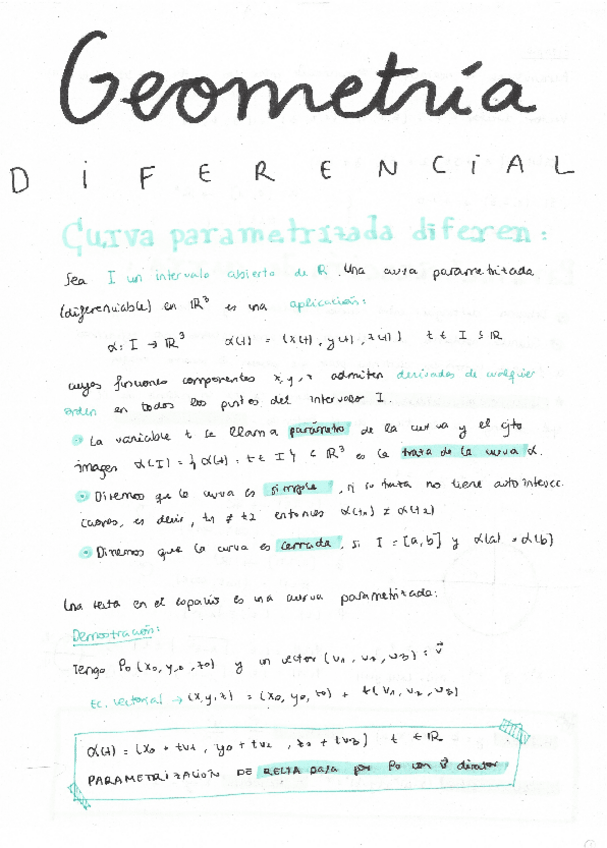 Geometría
DIFERENCIAL
Curva parametrizada diferen:
Sea I un intervalo abierto de R. Una curva parametrizada
(diferenciable) en ℝ³ es una aplicación:
α: I → ℝ³ α(t) = (x(t), y(t), z(t)) t ∈ I ⊆ ℝ
cuyas funciones componentes x, y, z admiten derivadas de cualquier
orden en todos los puntos del intervalo I.
La variable t se llama parámetro de la curva y el cjto
imagen α(I) = {α(t) : t ∈ I} ⊂ ℝ³ es la traza de la curva α.
Diremos que la curva es simple, si su traza no tiene autointersec.
ciones, es decir, t1 ≠ t2 entonces α(t1) ≠ α(t2)
Diremos que la curva es cerrada, si I = [a,b] y α(a) = α(b)
Una recta en el espacio es una curva parametrizada:
Demostración:
Tengo P0 (x0, y0, z0) y un vector (v1, v2, v3) = v⃗
Ec. vectorial → (x, y, z) = (x0, y0, z0) + t(v1, v2, v3)
α(t) = (x0 + tv1, y0 + tv2, z0 + tv3) t ∈ ℝ
PARAMETRIZACIÓN DE RECTA pasa por P0 con v⃗ director